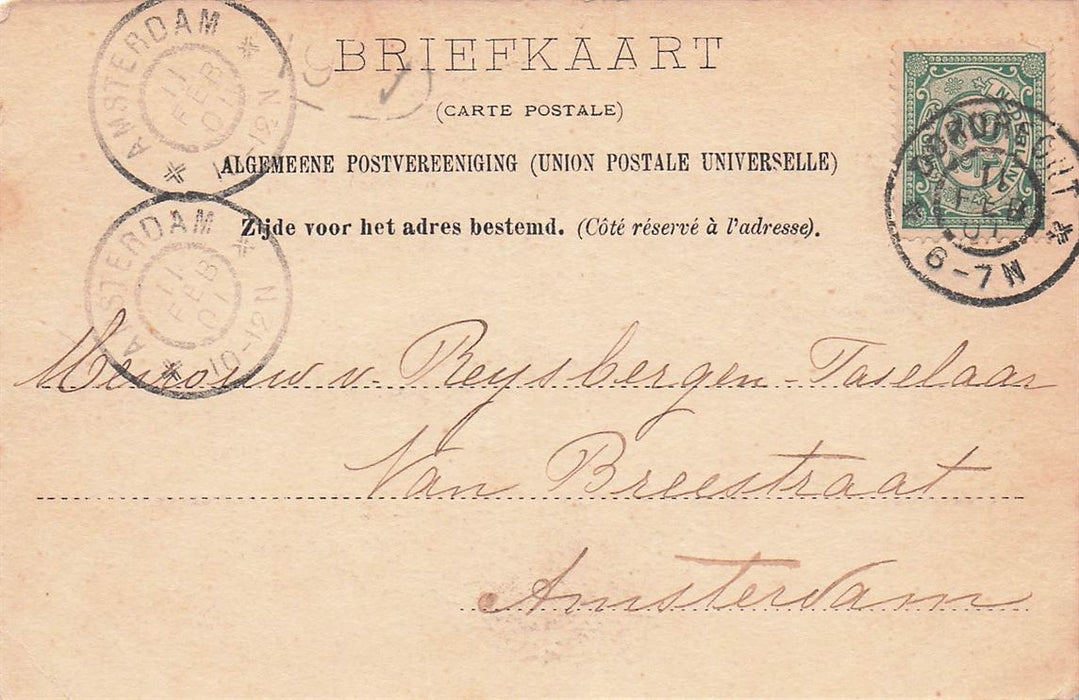 BRIEFKAART
(CARTE POSTALE)
ALGEMEENE POSTVEREENIGING (UNION POSTALE UNIVERSELLE)
Zijde voor het adres bestemd. (Côté réservé à l'adresse).
AMSTERDAM
11
FEB
01
12N
AMSTERDAM
11
FEB
01
10-12N
DORDRECHT
11
FEB
01
6-7N
Mevrouw v. Reysbergen-Taselaar
Van Breestraat
Amsterdam